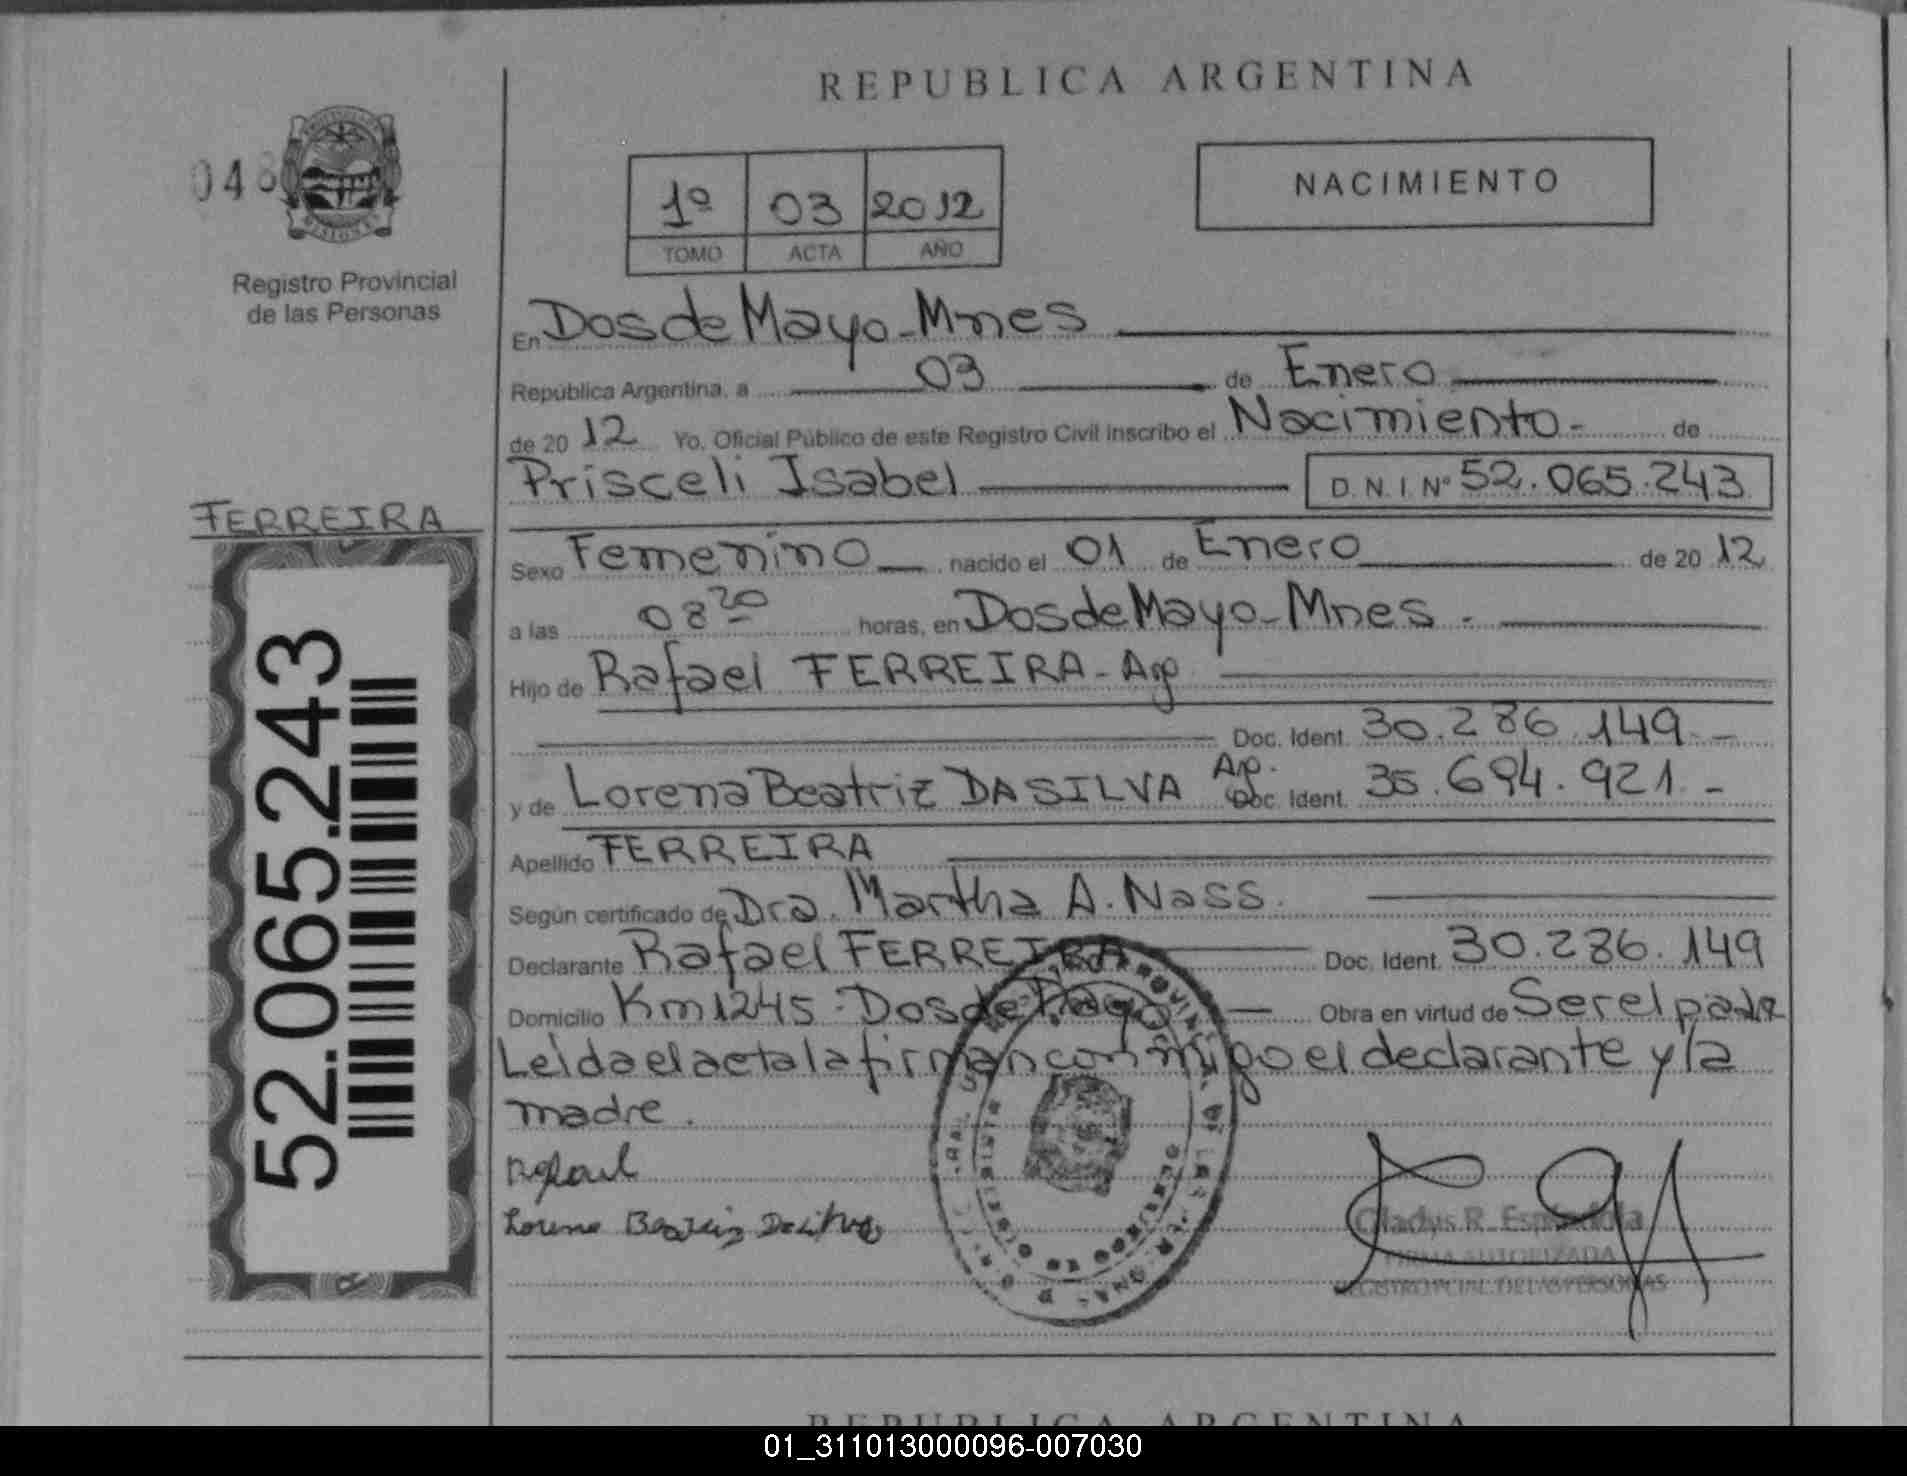 REPUBLICA ARGENTINA
048
1º 03 2012
TOMO ACTA AÑO
NACIMIENTO
Registro Provincial
de las Personas
En Dos de Mayo - Mnes
República Argentina, a 03 de Enero
de 20 12 Yo, Oficial Público de este Registro Civil inscribo el Nacimiento - de
Prisceli Isabel D.N.I. Nº 52.065.243
FERREIRA
52.065.243
Sexo Femenino nacido el 01 de Enero de 20 12
a las 08 20 horas, en Dos de Mayo - Mnes -
Hijo de Rafael FERREIRA - Arg
Doc. Ident. 30.286.149 -
y de Lorena Beatriz DA SILVA Arg. Doc. Ident. 35.694.921 -
Apellido FERREIRA
Según certificado de Dra. Martha A. Nass.
Declarante Rafael FERREIRA Doc. Ident. 30.286.149
Domicilio Km 1245 - Dos de Mayo - Obra en virtud de Ser el padre
Leída el acta la firman conmigo el declarante y la
madre.
Rafael
Lorena Beatriz Da Silva
Gladys R. Espíndola
FIRMA AUTORIZADA
REGISTRO PCIAL. DE LAS PERSONAS
REPUBLICA ARGENTINA
01_311013000096-007030